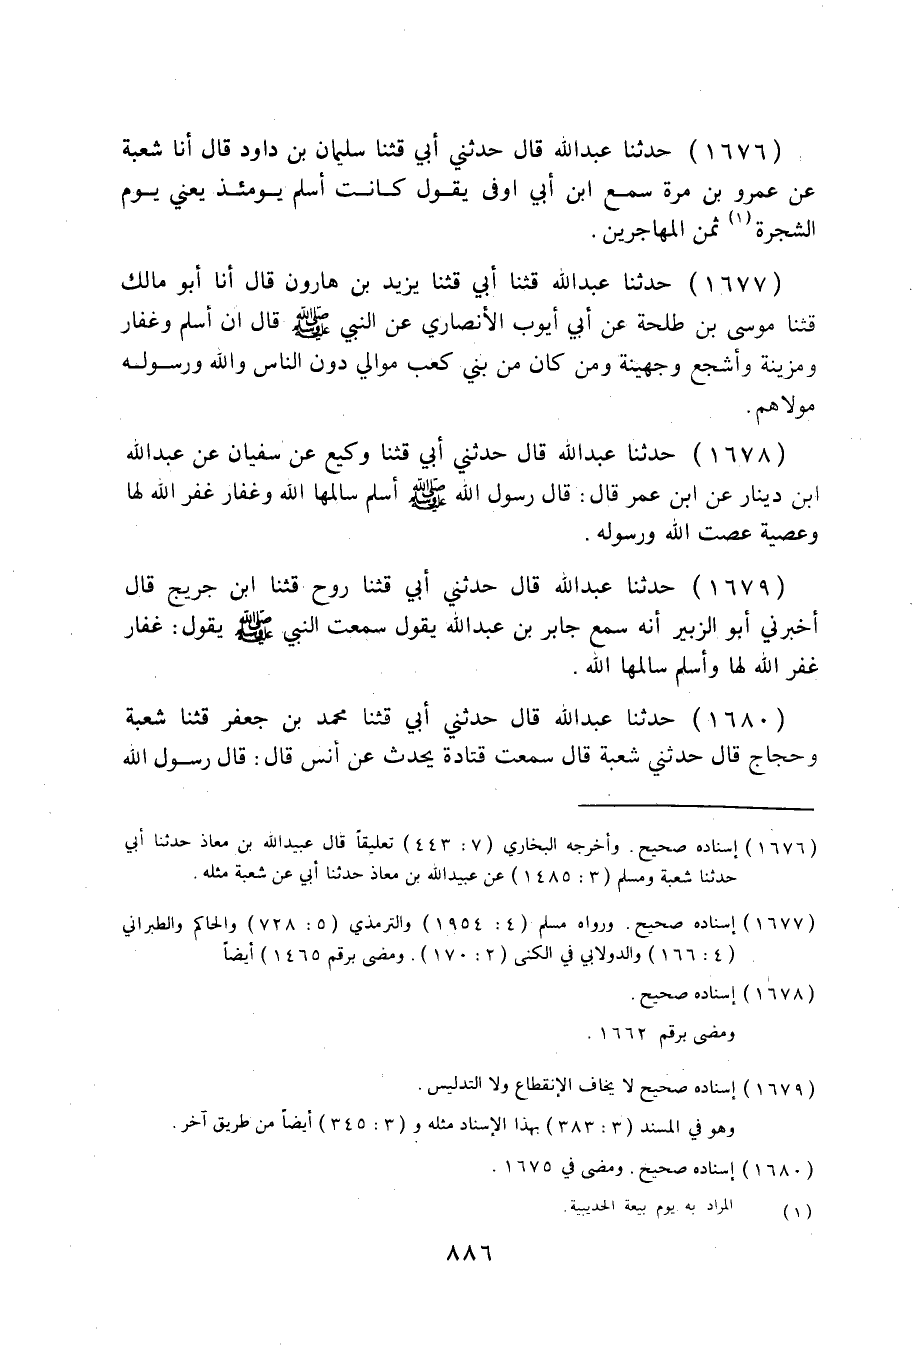 (١٦٧٦) حدثنا عبدالله قال حدثني أبي قثنا سليمان بن داود قال أنا شعبة
عن عمرو بن مرة سمع ابن أبي اوفى يقول كانت أسلم يومئذ يعني يوم
الشجرة(١) ثمن المهاجرين .
(١٦٧٧) حدثنا عبدالله قثنا أبي قثنا يزيد بن هارون قال أنا أبو مالك
قثنا موسى بن طلحة عن أبي أيوب الأنصاري عن النبي ﷺ قال ان أسلم وغفار
ومزينة وأشجع وجهينة ومن كان من بني كعب موالي دون الناس والله ورسوله
مولاهم.
(١٦٧٨) حدثنا عبدالله قال حدثني أبي قثنا وكيع عن سفيان عن عبدالله
ابن دينار عن ابن عمر قال: قال رسول الله ﷺ أسلم سالمها الله وغفار غفر الله لها
وعصية عصت الله ورسوله .
(١٦٧٩) حدثنا عبدالله قال حدثني أبي قثنا روح قثنا ابن جريج قال
أخبرني أبو الزبير أنه سمع جابر بن عبدالله يقول سمعت النبي ﷺ يقول: غفار
غفر الله لها وأسلم سالمها الله .
(١٦٨٠) حدثنا عبدالله قال حدثني أبي قثنا محمد بن جعفر قثنا شعبة
وحجاج قال حدثني شعبة قال سمعت قتادة يحدث عن أنس قال: قال رسول الله
(١٦٧٦) إسناده صحيح . وأخرجه البخاري (٧: ٤٤٣) تعليقاً قال عبيدالله بن معاذ حدثنا أبي
حدثنا شعبة ومسلم (٣: ١٤٨٥) عن عبيدالله بن معاذ حدثنا أبي عن شعبة مثله .
(١٦٧٧) إسناده صحيح . ورواه مسلم (٤: ١٩٥٤) والترمذي (٥: ٧٢٨) والحاكم والطبراني
(٤: ١٦٦) والدولابي في الكنى (٢: ١٧٠). ومضى برقم ١٤٦٥) أيضاً
(١٦٧٨) إسناده صحيح .
ومضى برقم ١٦٦٢ .
(١٦٧٩) إسناده صحيح لا يخاف الإنقطاع ولا التدليس .
وهو في المسند (٣: ٣٨٣) بهذا الإسناد مثله و (٣: ٣٤٥) أيضاً من طريق آخر .
(١٦٨٠) إسناده صحيح . ومضى في ١٦٧٥ .
(١) المراد به يوم بيعة الحديبية.
٨٨٦